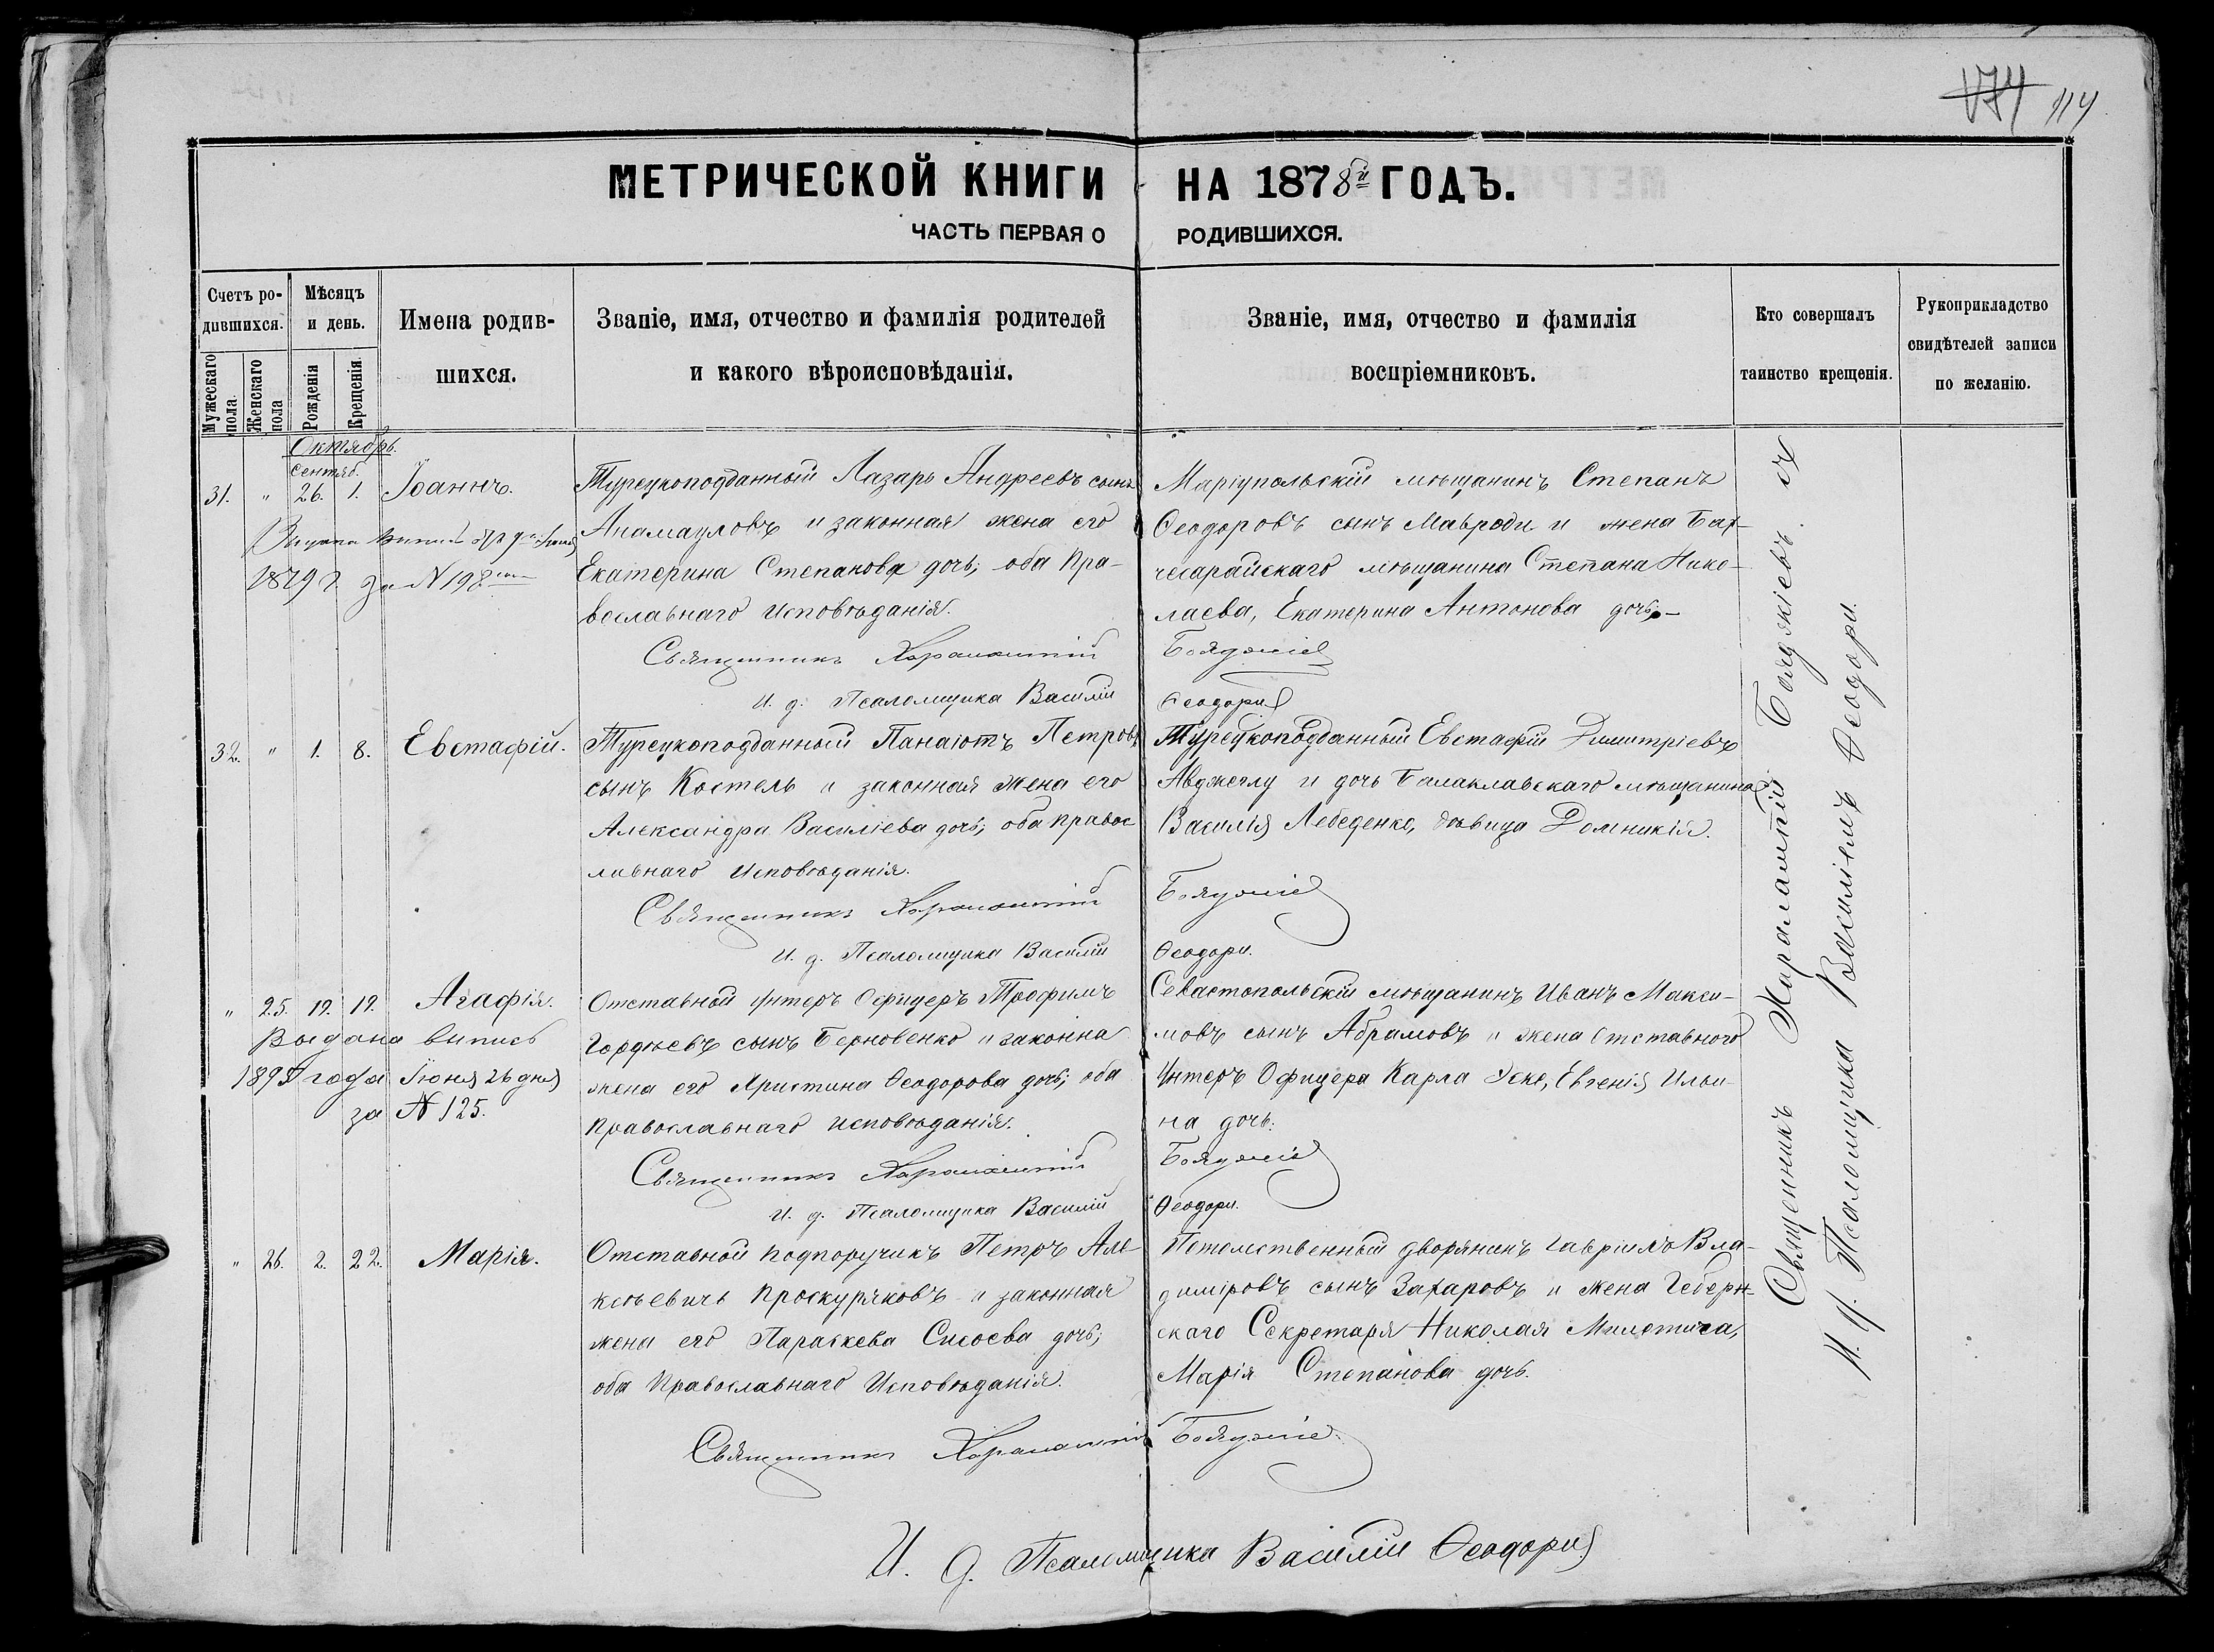 174 114
МЕТРИЧЕСКОЙ КНИГИ НА 1878й ГОДЪ.
ЧАСТЬ ПЕРВАЯ О РОДИВШИХСЯ.
Счетъ родившихся.
Мужескаго пола.
Женскаго пола
Мѣсяцъ и день.
Рожденія
Крещенія
Имена родившихся.
Званіе, имя, отчество и фамилія родителей
и какого вѣроисповѣданія.
Званіе, имя, отчество и фамилія
воспріемниковъ.
Кто совершалъ
таинство крещенія.
Рукоприкладство
свидѣтелей записи
по желанію.
Октябрь.
Сентяб.
31. " 26. 1. Іоаннъ.
1879 г. за N 198
Турецкоподданный Лазарь Андреевъ сынъ
и законная жена его
Екатерина Степанова дочь; оба Пра-
вославнаго Исповѣданія.
Священникъ Харалампій
И. д. Псаломщика Василій
Маріупольскій мѣщанинъ Степанъ
Ѳеодоровъ сынъ Мавроди и жена Бах-
чесарайскаго мѣщанина Степана Нико-
лаева, Екатерина Антонова дочь.
Бояджіевъ
Ѳеодори
32. " 1. 8. Евстафій.
Турецкоподданный Панаіотъ Петровъ
сынъ Костель и законная жена его
Александра Василіева дочь; оба правос
лавнаго Исповѣданія.
Священникъ Харалампій
И. д. Псаломщика Василій
Турецкоподданный Евстафій Димитріевъ
Авджеглу и дочь Балаклавскаго мѣщанина
Василія Лебеденко, дѣвица Домникія.
Бояджіевъ
Ѳеодори.
" 25. 12. 12. Агафія.
Выдана выпись
1895 года Іюня 26 дня
за N 125.
Отставной Унтеръ Офицеръ Трофимъ
Гордѣевъ сынъ Берновенко и законна
жена его Христина Ѳеодорова дочь; оба
Православнаго исповѣданія.
Священникъ Харалампій
И. д. Псаломщика Василій
Севастопольскій мѣщанинъ Иванъ Макси-
мовъ сынъ Абрамовъ и жена Отставного
Унтеръ Офицера Карла Эске, Евгенія Ильи-
на дочь.
Бояджіевъ
Ѳеодори.
" 26. 2. 22. Марія.
Отставной Подпоручикъ Петръ Але-
ксѣевичъ Проскуряковъ и законная
жена его Параскева Сисоева дочь;
оба Православнаго Исповѣданія.
Священникъ Харалампій
Потомственный дворянинъ Гавріилъ Вла-
диміровъ сынъ Захаровъ и жена Губерн-
скаго Секретаря Николая Милотича,
Марія Степанова дочь.
Бояджіевъ
И. д. Псаломщика Василій Ѳеодори
Священникъ Харалампій Бояджіевъ. съ
И. д. Псаломщика Василіемъ Ѳеодори.